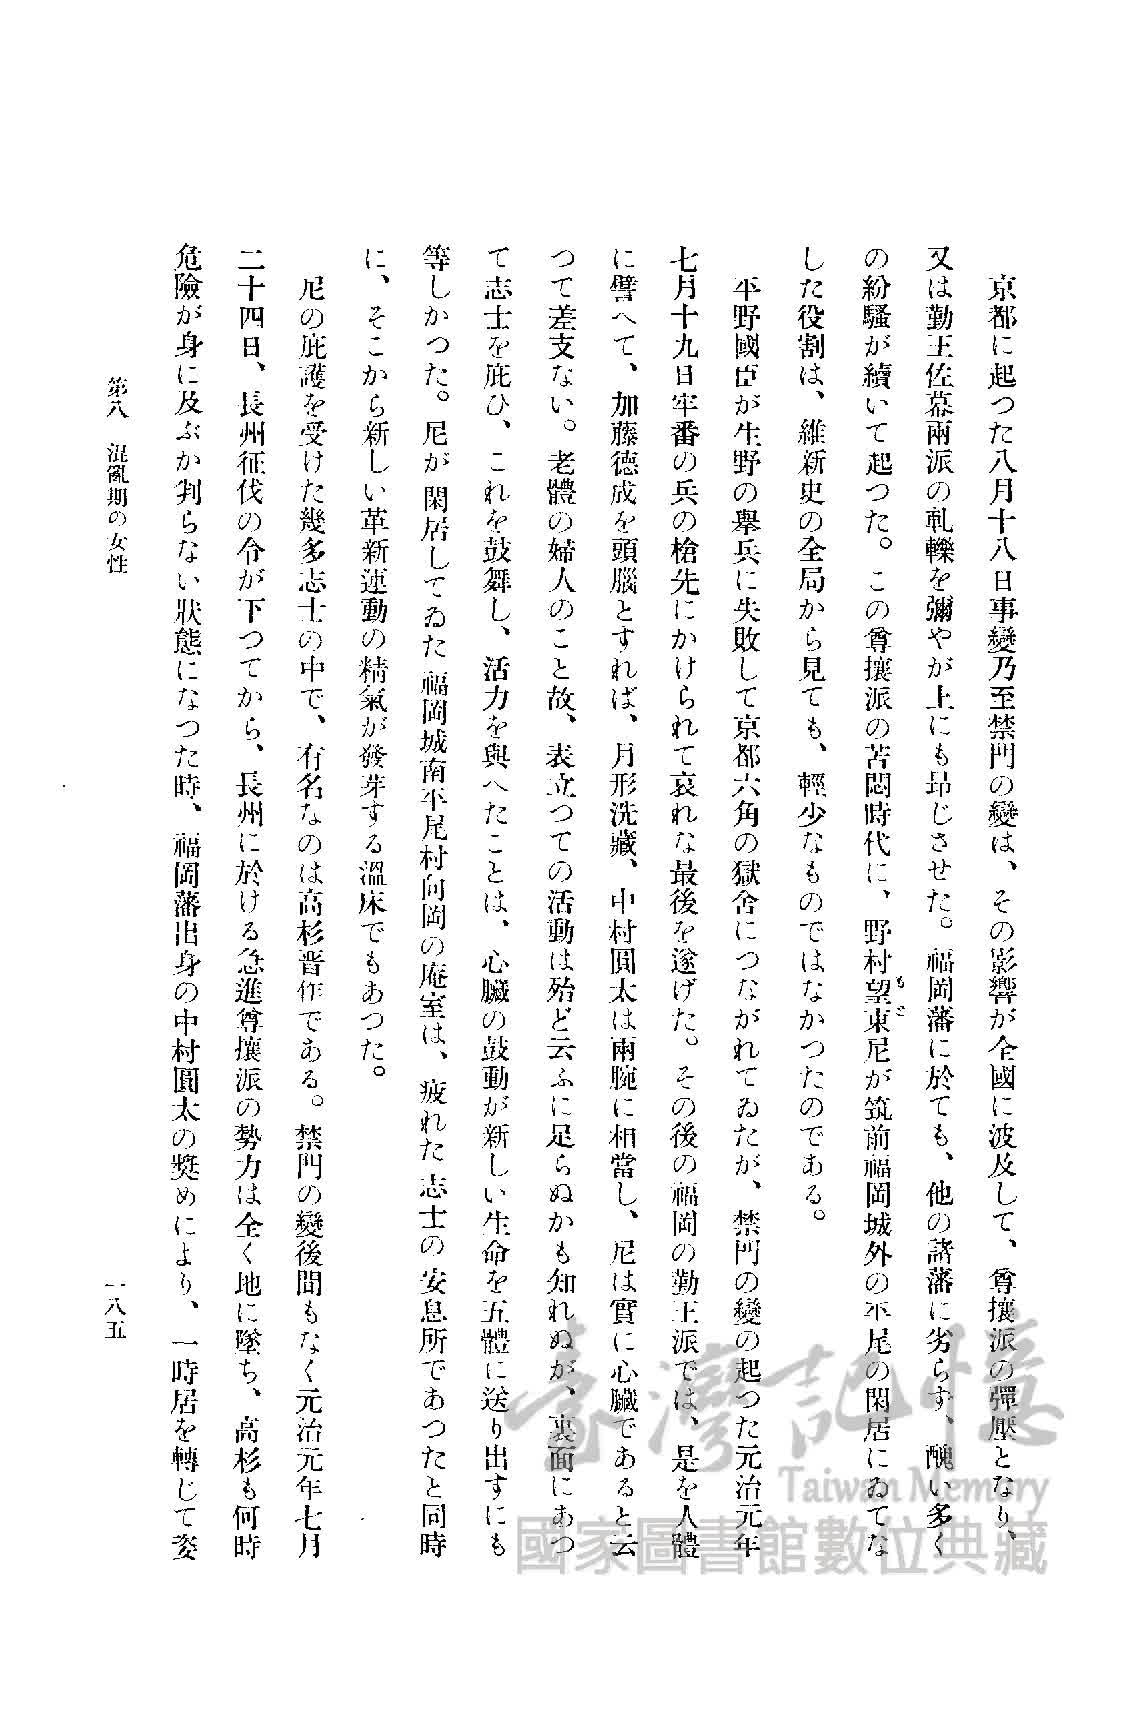 京都に起つた八月十八日事變乃至禁門の變は、その影響が全國に波及して、尊攘派の彈壓となり、
又は勤王佐幕兩派の軋轢を彌やが上にも昂じさせた。福岡藩に於ても、他の諸藩に劣らず、醜い多く
の紛騷が續いて起つた。この尊攘派の苦悶時代に、野村望東尼が筑前福岡城外の平尾の閑居にゐてな
もと
した役割は、維新史の全局から見ても、輕少なものではなかつたのである。
平野國臣が生野の擧兵に失敗して京都六角の獄舍につながれてゐたが、禁門の變の起つた元治元年
七月十九日牢番の兵の槍先にかけられて哀れな最後を遂げた。その後の福岡の勤王派では、是を人體
に譬へて、加藤德成を頭腦とすれば、月形洗藏、中村圓太は兩腕に相當し、尼は實に心臟であると云
つて差支ない。老體の婦人のこと故、表立つての活動は殆ど云ふに足らぬかも知れぬが、裏面にあつ
て志士を庇ひ、これを鼓舞し、活力を與へたことは、心臟の鼓動が新しい生命を五體に送り出すにも
等しかつた。尼が閑居してゐた福岡城南平尾村向岡の庵室は、疲れた志士の安息所であつたと同時
に、そこから新しい革新運動の精氣が發芽する溫床でもあつた。
尼の庇護を受けた幾多志士の中で、有名なのは高杉晋作である。禁門の變後間もなく元治元年七月
二十四日、長州征伐の令が下つてから、長州に於ける急進尊攘派の勢力は全く地に墜ち、高杉も何時
危險が身に及ぶか判らない狀態になつた時、福岡藩出身の中村圓太の奬めにより、一時居を轉じて姿
第八 混亂期の女性
一八五
臺灣記憶
Taiwan Memory
國家圖書館數位典藏